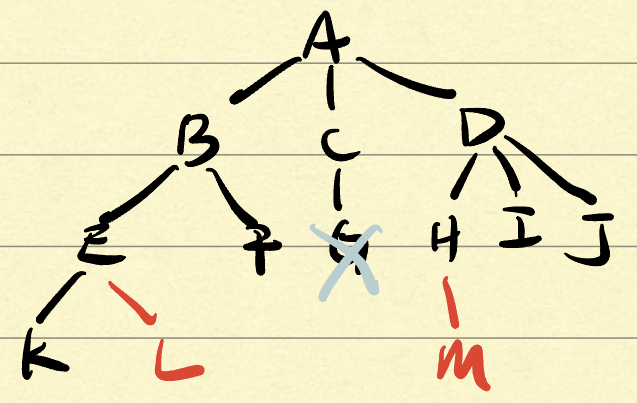 A
B C D
E F G H I J
K L M